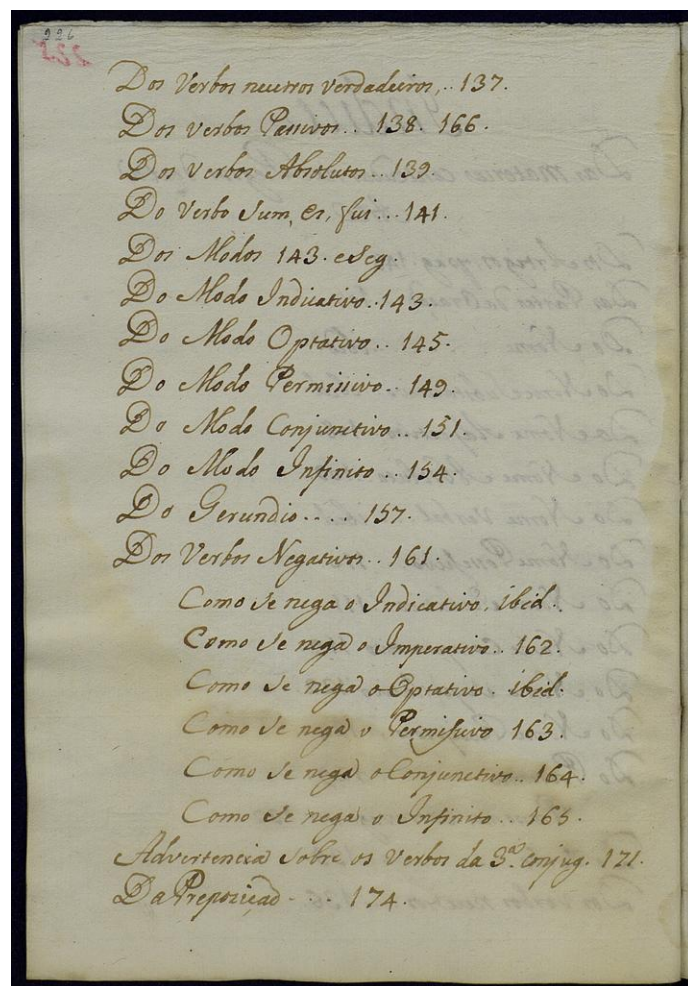 226
225
Dos Verbos neutros verdadeiros,.. 137.
Dos verbos Passivos.. 138. 166.
Dos verbos Absolutos.. 139.
Do Verbo Sum, es, fui... 141.
Dos Modos 143. e seg.
Do Modo Indicativo. 143.
Do Modo Optativo.. 145.
Do Modo Permissivo.. 149.
Do Modo Conjunctivo.. 151
Do Modo Infinito.. 154.
Do Gerundio.... 157.
Dos Verbos Negativos.. 161.
Como se nega o Indicativo. ibid.
Como se nega o Imperativo.. 162.
Como se nega o Optativo. ibid.
Como se nega o Permissivo 163.
Como se nega o Conjunctivo.. 164.
Como se nega o Infinito.. 165.
Advertencia sobre os Verbos da 3ª. conjug. 171.
Da Prepozição.... 174.